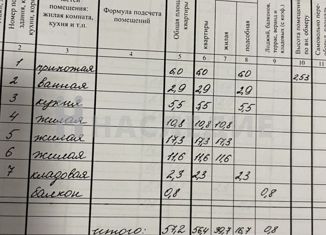 помещений:
жилая комната,
кухня и т.п.
Формула подсчета
помещений
квартиры
квартиры
жилая
подсобная
Высота помещений
по вн. обмеру
4 5 6 7 8 9 10 11
1 прихожая 6,0 6,0 6,0 2,53
2 ванная 2,9 2,9 2,9
3 кухня 5,5 5,5 5,5
4 жилая 10,8 10,8 10,8
5 жилая 17,3 17,3 17,3
6 жилая 11,6 11,6 11,6
7 кладовая 2,3 2,3 2,3
балкон 0,8 0,8
итого: 57,2 56,4 39,7 16,7 0,8